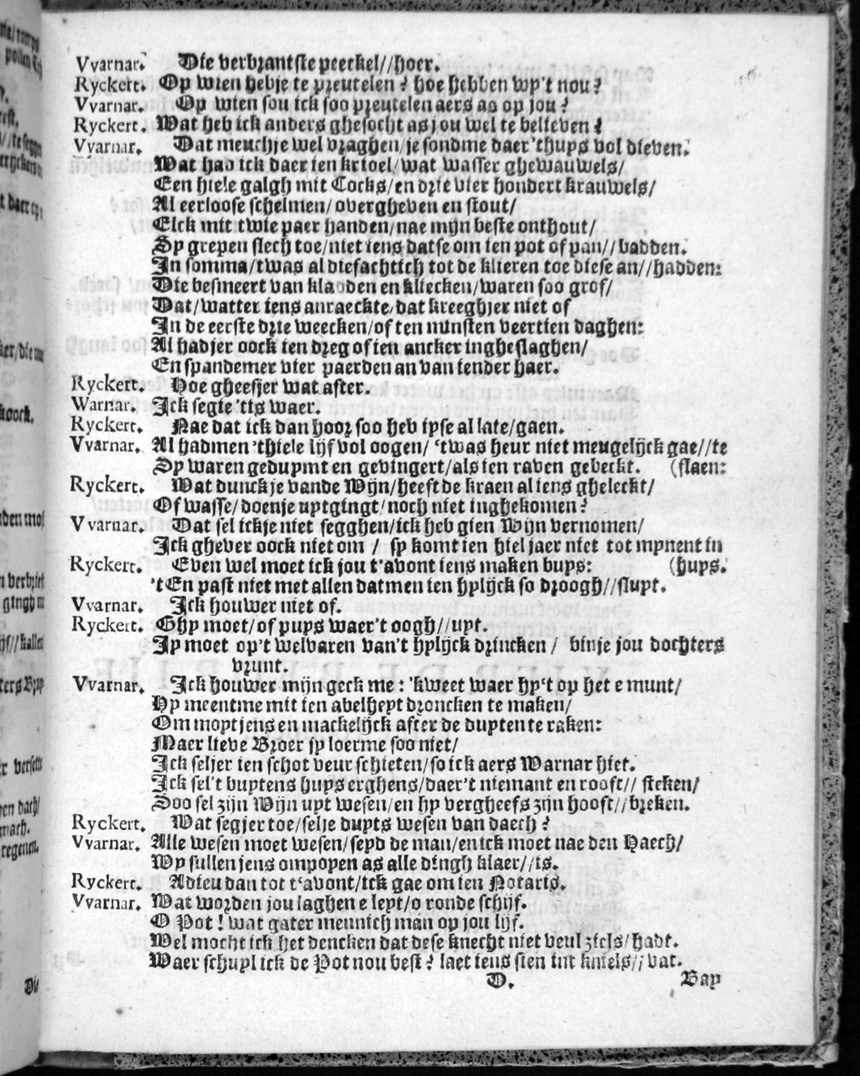 Vvarnar. Die verbrantste peeckel//hoer.
Ryckert. Op wien hebje te preutelen? hoe hebben wy't nou?
Vvarnar. Op wien sou ick soo preutelen aers as op jou?
Ryckert. Wat heb ick anders ghesocht as jou wel te believen?
Vvarnar. Dat meuchje wel vraghen/je sondme daer 'thuys vol dieven.
Wat had ick daer ien krioel/wat wasser ghewauwels/
Een hiele galgh mit Cocks/en drie vier hondert krauwels/
Al eerloose schelmen/overgheven en stout/
Elck mit twie paer handen/nae mijn beste onthout/
Sy grepen slech toe/niet iens datse om ien pot of pan//badden.
In somma/twas al diefachtich tot de klieren toe diese an//hadden:
Die besmeert van kladden en kliecken/waren soo grof/
Dat/watter iens anraeckte/dat kreeghjer niet of
In de eerste drie weecken/of ten minsten veertien daghen:
Al hadjer oock ien dreg of ien ancker ingheslaghen/
En spandemer vier paerden an van iender haer.
Ryckert. Hoe gheesjer wat after.
Warnar. Ick segje 'tis waer.
Ryckert. Nae dat ick dan hoor soo heb ipse al late/gaen.
Vvarnar. Al hadmen 'thiele lijf vol oogen/ 'twas heur niet meugelijck gae//te
Sy waren geduymt en gevingert/als ien raven gebeckt. (slaen:
Ryckert. Wat dunckje vande Wijn/heeft de kraen al iens gheleckt/
Of wasse/doenje uytgingt/noch niet inghekomen?
Vvarnar. Dat sel ickje niet segghen/ick heb gien Wijn vernomen/
Ick ghever oock niet om / sy komt ien hiel jaer niet tot mynent in
Ryckert. Even wel moet ick jou t'avont iens maken buys: (huys.
'tEn past niet met allen datmen ien hylijck so droogh//sluyt.
Vvarnar. Ick houwer niet of.
Ryckert. Ghy moet/of puys waer't oogh//uyt.
Jy moet op't welvaren van't hylijck drincken / binje jou dochters
vrunt.
Vvarnar. Ick houwer mijn geck me: 'kweet waer hy't op het e munt/
Hy meentme mit ien abelheyt droncken te maken/
Om moytjens en mackelijck after de duyten te raken:
Maer lieve Broer jy loerme soo niet/
Ick seljer ien schot veur schieten/so ick aers Warnar hiet.
Ick sel't buytens huys erghens/daer't niemant en rooft//steken/
Soo sel zijn Wijn uyt wesen/en hy vergheefs zijn hooft//breken.
Ryckert. Wat segjer toe/selje duyts wesen van daech?
Vvarnar. Alle wesen moet wesen/seyd de man/en ick moet nae den Haech/
Wy sullen jens ompopen as alle dingh klaer//is.
Ryckert. Adieu dan tot t'avont/ick gae om ien Notaris.
Vvarnar. Wat worden jou laghen e leyt/o ronde schijf.
O Pot! wat gater mennich man op jou lijf.
Wel mocht ick het dencken dat dese knecht niet veul ziels/hadt.
Waer schuyl ick de Pot nou best? laet iens sien vat.
D. Bay